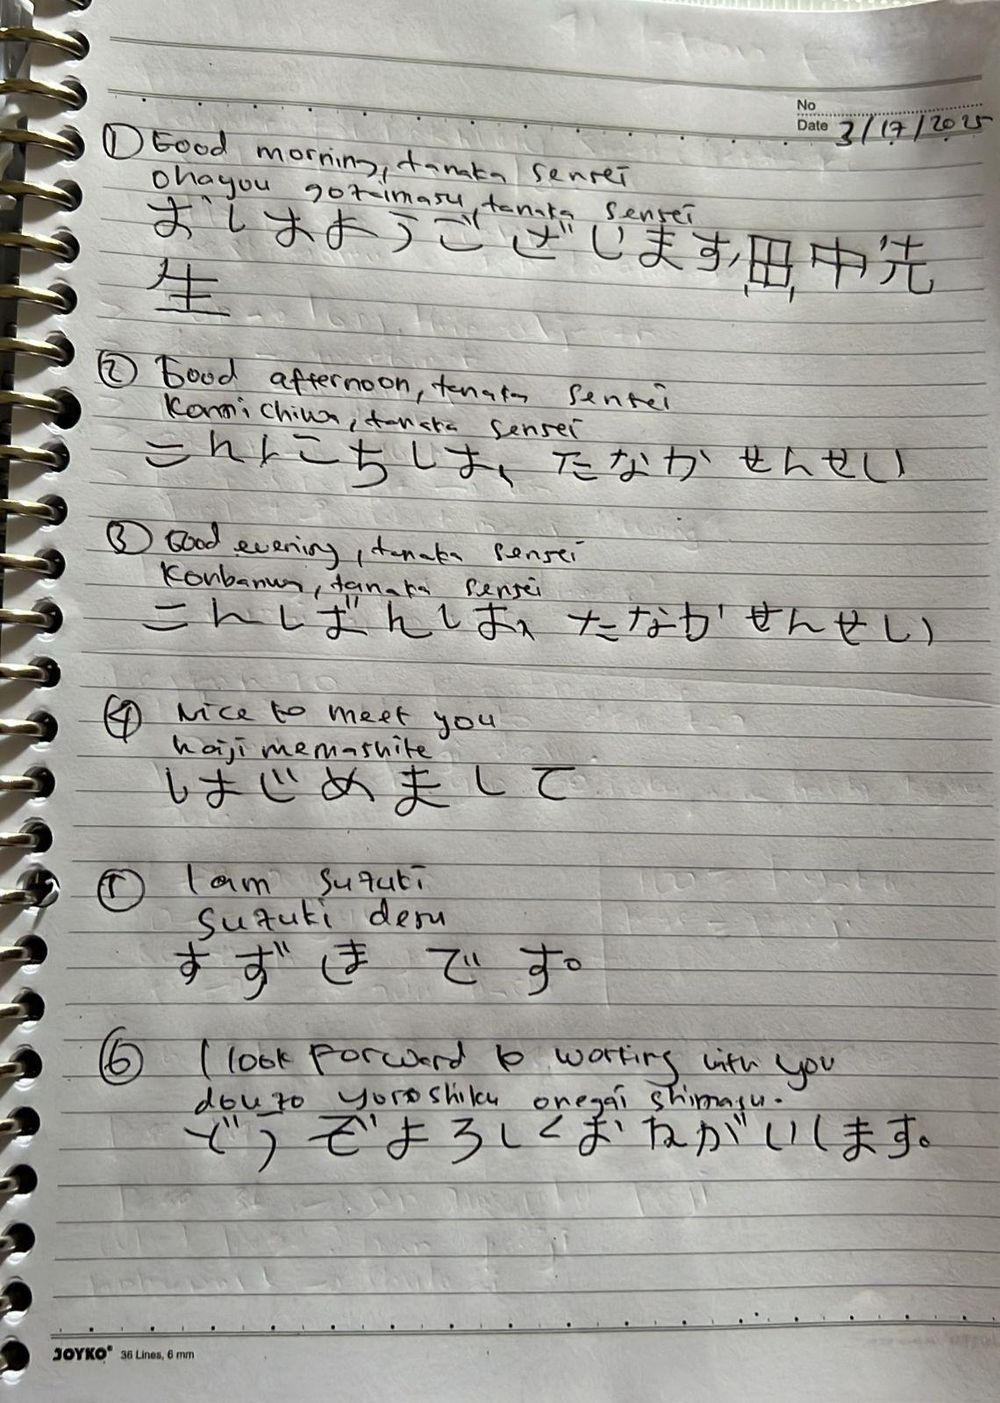 No
Date 3/17/2025
① Good morning, tanaka sensei
ohayou gozaimasu, tanaka sensei
おはようございます, 田中先
生
② Good afternoon, tanaka sensei
Konnichiwa, tanaka sensei
こんにちは、たなか せんせい
③ Good evening, tanaka sensei
Konbanwa, tanaka sensei
こんばんは、たなか せんせい
④ Nice to meet you
hajimemashite
はじめまして
⑤ I am suzuki
suzuki desu
すずき です。
⑥ I look forward to working with you
douzo yoroshiku onegai shimasu.
どうぞよろしくおねがいします。
JOYKO® 36 Lines, 6 mm